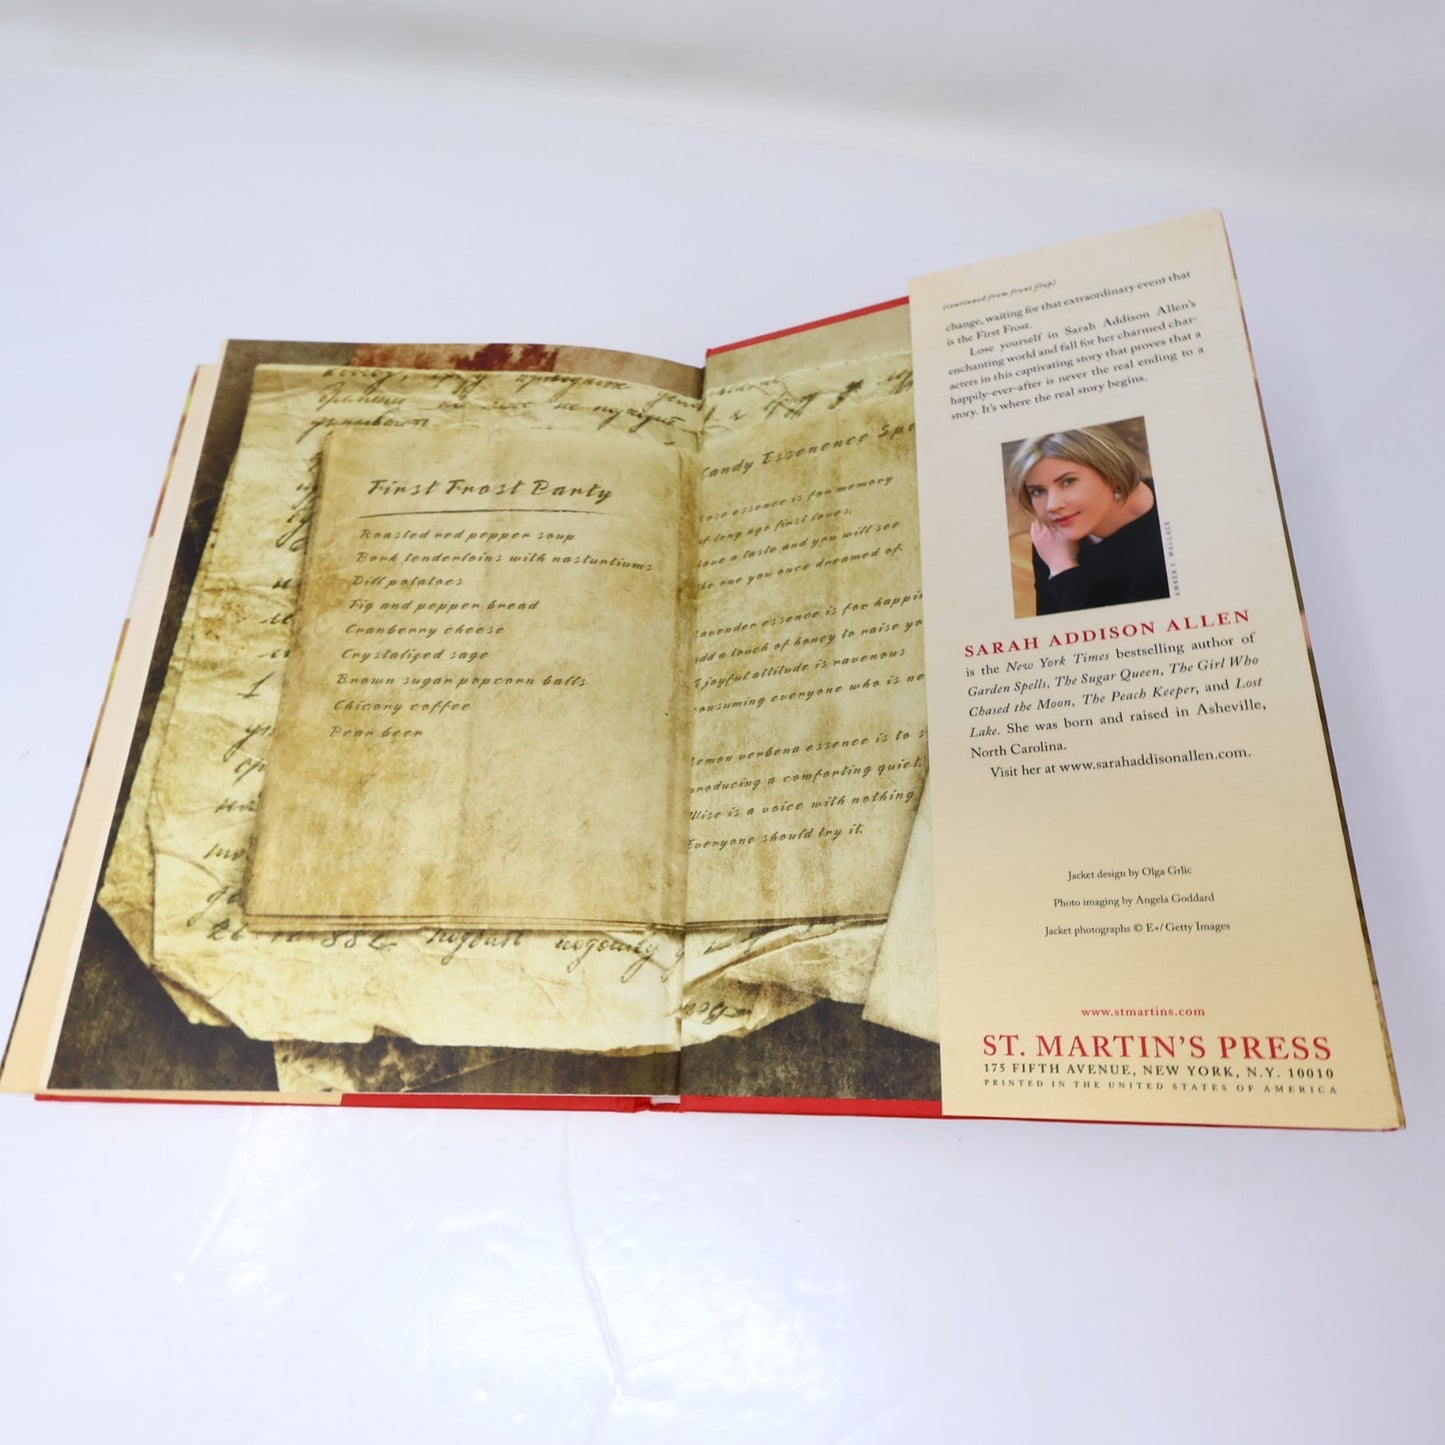 First Frost Party
Roasted red pepper soup
Pork tenderloins with nasturtiums
Dill potatoes
Fig and pepper bread
Cranberry cheese
Crystalized sage
Brown sugar popcorn balls
Chicory coffee
Pear beer
Candy Essenence Spe
Rose essence is for memory
of long ago first loves.
Have a taste and you will see
the one you once dreamed of.
Lavender essence is for happi
add a touch of honey to raise yo
A joyful attitude is ravenous
consuming everyone who is ne
Lemon verbena essence is to s
producing a comforting quiet.
Wise is a voice with nothing
Everyone should try it.
(continued from front flap)
change, waiting for that extraordinary event that
is the First Frost.
Lose yourself in Sarah Addison Allen's
enchanting world and fall for her charmed char-
acters in this captivating story that proves that a
happily-ever-after is never the real ending to a
story. It's where the real story begins.
AMBER V. WALLACE
SARAH ADDISON ALLEN
is the New York Times bestselling author of
Garden Spells, The Sugar Queen, The Girl Who
Chased the Moon, The Peach Keeper, and Lost
Lake. She was born and raised in Asheville,
North Carolina.
Visit her at www.sarahaddisonallen.com.
Jacket design by Olga Grlic
Photo imaging by Angela Goddard
Jacket photographs © E+/ Getty Images
www.stmartins.com
ST. MARTIN'S PRESS
175 FIFTH AVENUE, NEW YORK, N.Y. 10010
PRINTED IN THE UNITED STATES OF AMERICA